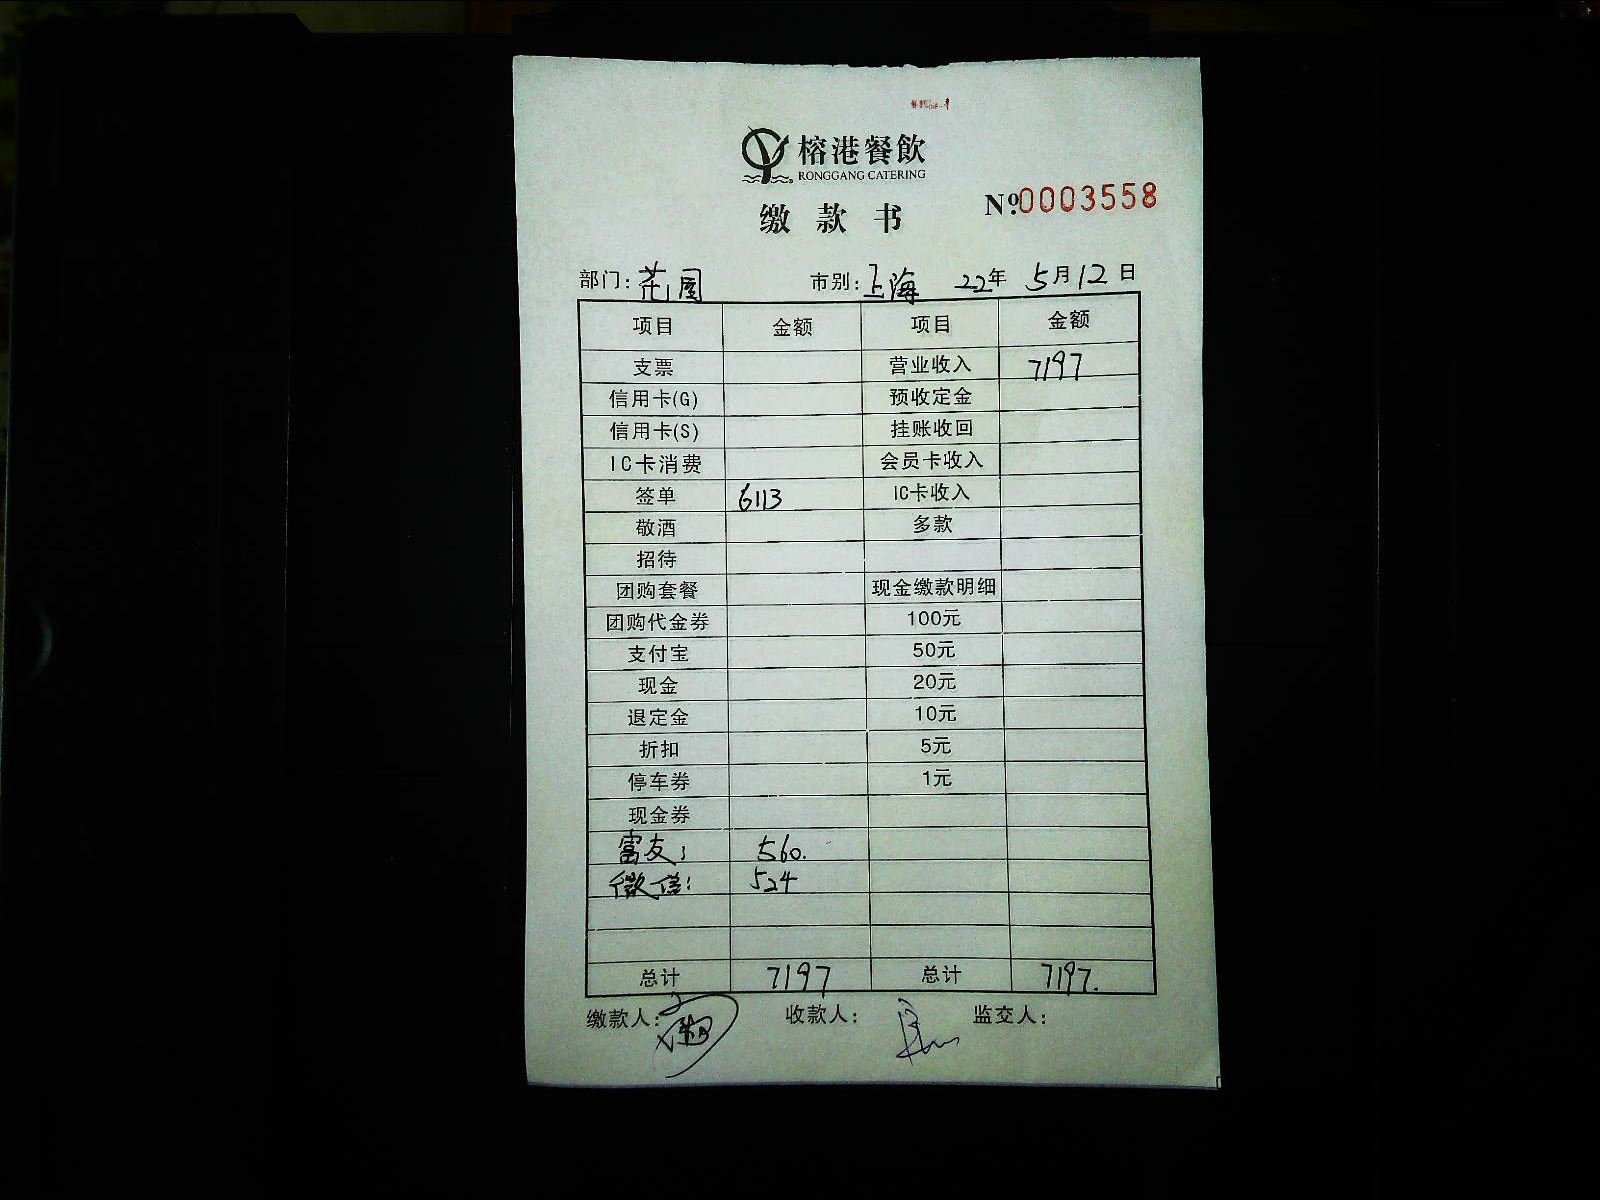 榕港餐飲
RONGGANG CATERING
缴款书
№0003558
部门: 花园 市别: 上海 22年 5月12日
项目 金额 项目 金额
支票 营业收入 7197
信用卡(G) 预收定金
信用卡(S) 挂账收回
IC卡消费 会员卡收入
签单 6113 IC卡收入
敬酒 多款
招待
团购套餐 现金缴款明细
团购代金券 100元
支付宝 50元
现金 20元
退定金 10元
折扣 5元
停车券 1元
现金券
富友: 560.
微信: 524
总计 7197 总计 7197.
缴款人: 收款人: 监交人: